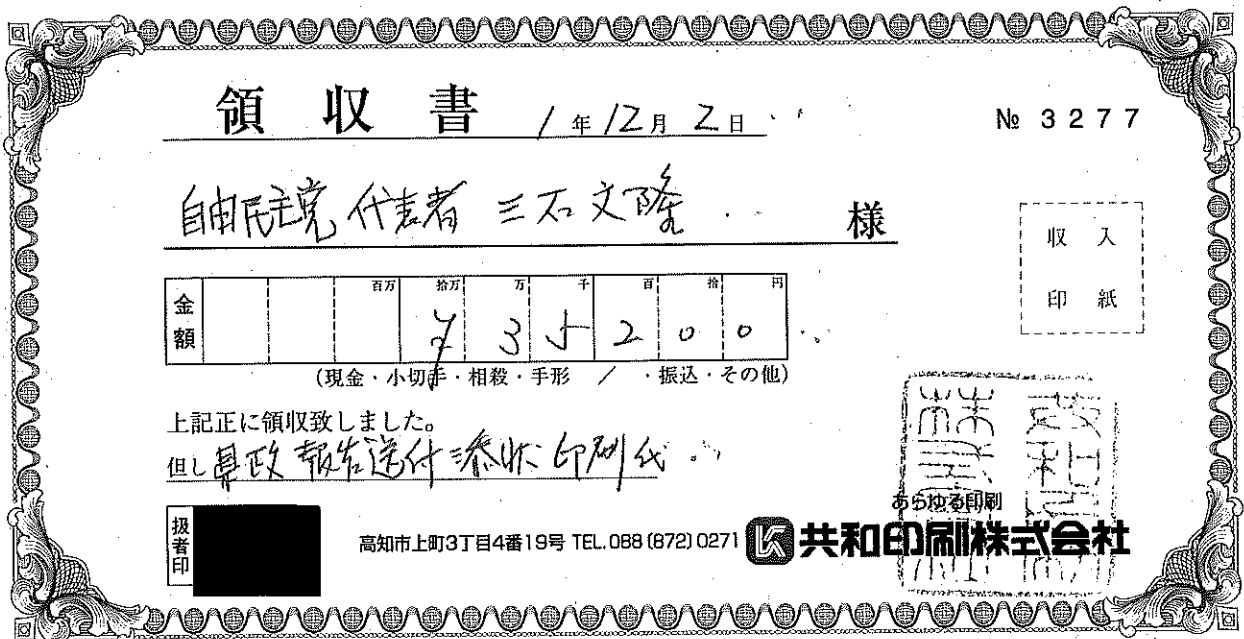 領収書 1年12月2日
№ 3277
自由民主党 代表者 三石文隆 様
収入
印紙
金額 百万 拾万 万 千 百 拾 円
¥35200
(現金・小切手・相殺・手形 / ・振込・その他)
上記正に領収致しました。
但し 県政報告送付添状印刷代
扱者印
あらゆる印刷
高知市上町3丁目4番19号 TEL.088(872)0271 K 共和印刷株式会社